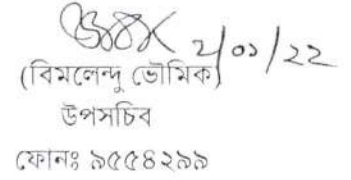 ২/০১/২২
(বিমলেন্দু ভৌমিক)
উপসচিব
ফোনঃ ৯৫৫৪২৯৯